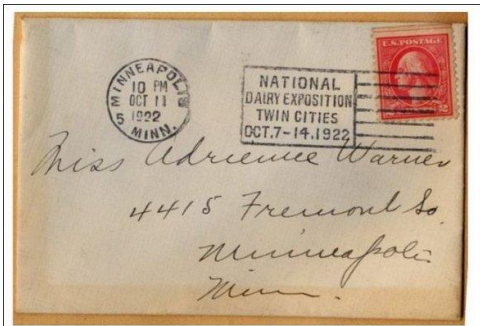 U.S. POSTAGE
MINNEAPOLIS
10 PM
OCT 11
1922
5 MINN.
NATIONAL
DAIRY EXPOSITION
TWIN CITIES
OCT. 7-14. 1922
Miss Adrienne Warner
4415 Fremont So.
Minneapolis
Minn.